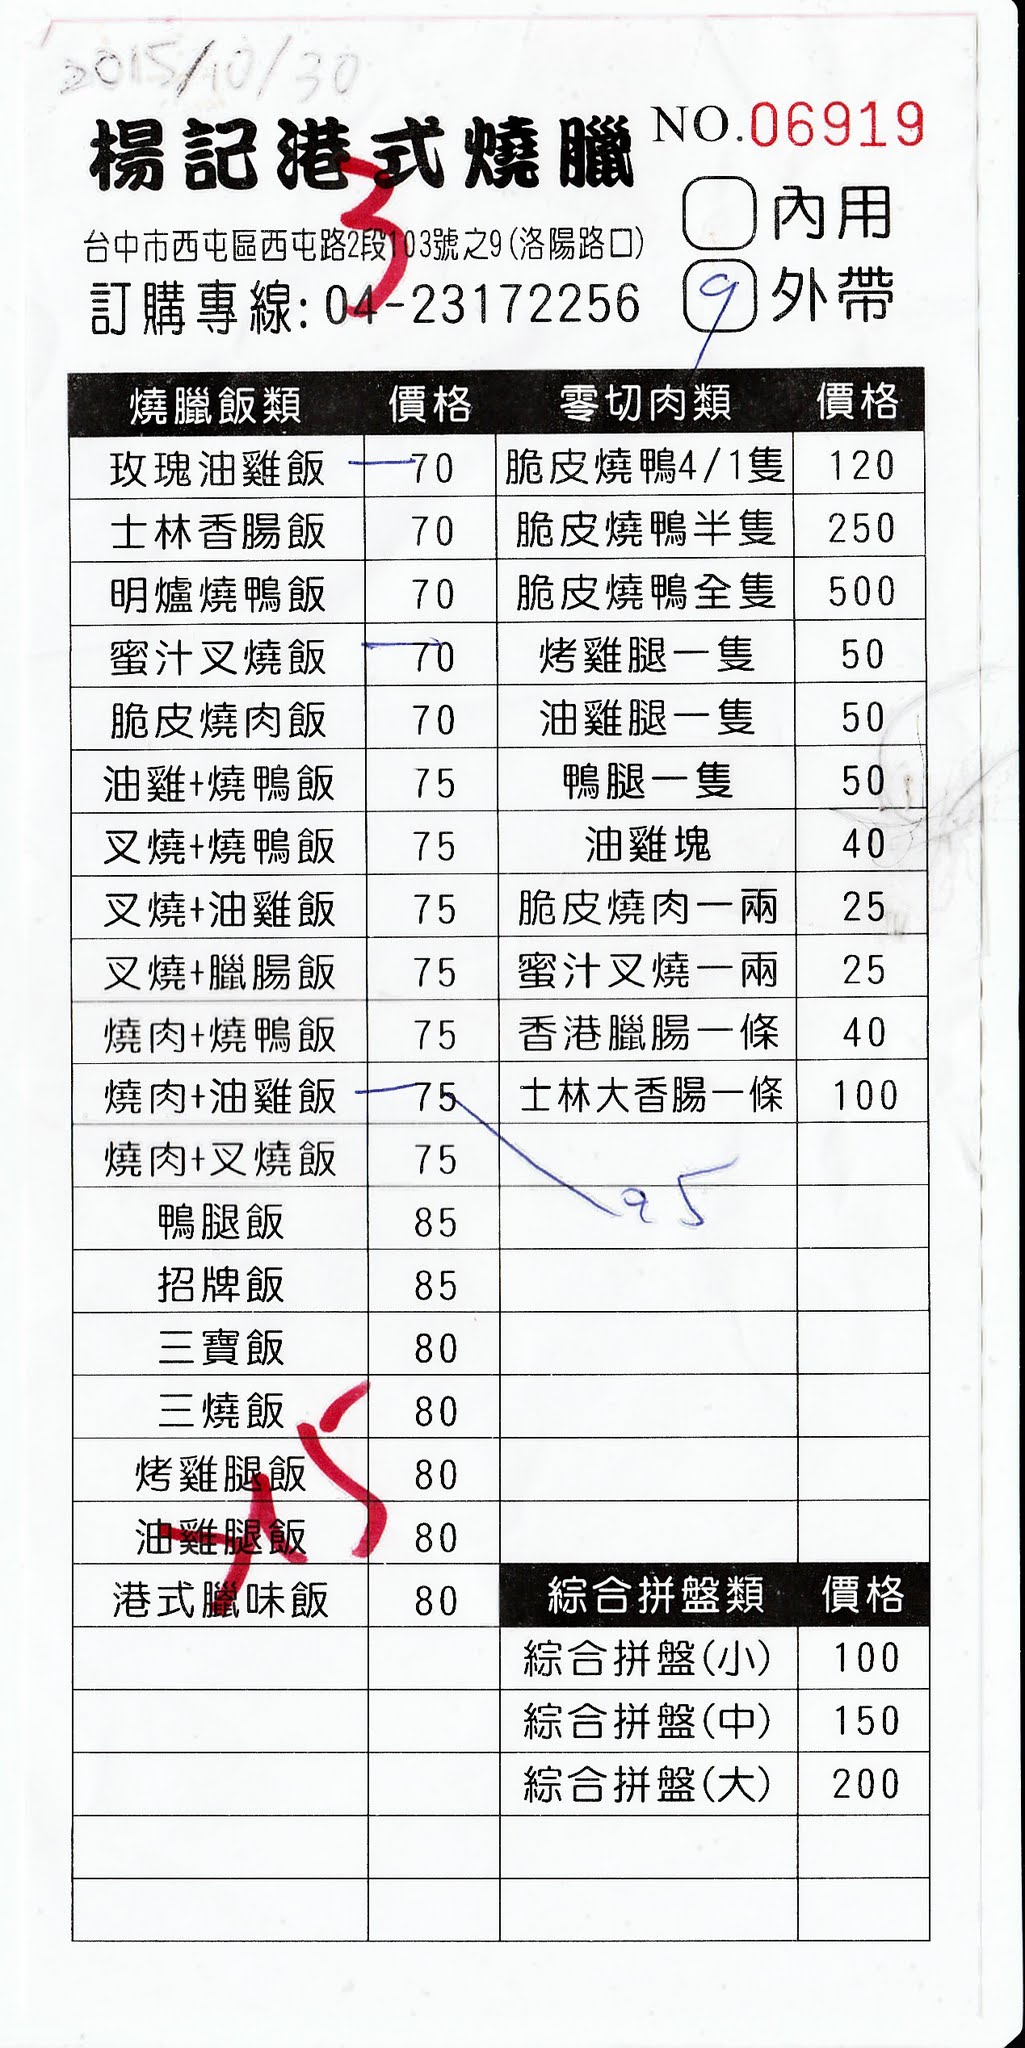 2015/10/30
楊記港式燒臘 NO.06919
3
台中市西屯區西屯路2段103號之9(洛陽路口)
內用
訂購專線: 04-23172256
9 外帶
燒臘飯類 價格 零切肉類 價格
玫瑰油雞飯 一 70 脆皮燒鴨4/1隻 120
士林香腸飯 70 脆皮燒鴨半隻 250
明爐燒鴨飯 70 脆皮燒鴨全隻 500
蜜汁叉燒飯 一 70 烤雞腿一隻 50
脆皮燒肉飯 70 油雞腿一隻 50
油雞+燒鴨飯 75 鴨腿一隻 50
叉燒+燒鴨飯 75 油雞塊 40
叉燒+油雞飯 75 脆皮燒肉一兩 25
叉燒+臘腸飯 75 蜜汁叉燒一兩 25
燒肉+燒鴨飯 75 香港臘腸一條 40
燒肉+油雞飯 一 75 士林大香腸一條 100
燒肉+叉燒飯 75
95
鴨腿飯 85
招牌飯 85
三寶飯 80
三燒飯 80
烤雞腿飯 80
油雞腿飯 80
港式臘味飯 80 綜合拼盤類 價格
綜合拼盤(小) 100
綜合拼盤(中) 150
綜合拼盤(大) 200